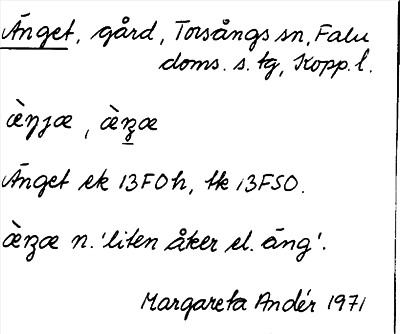 Änget, gård, Torsångs sn, Falu
doms. s. tg, Kopp. l.
æ̀ŋjæ, æ̀ʒæ
Änget ek 13FOh, tk 13FSO.
æ̀ʒæ n. 'liten åker el. äng'.
Margareta Andér 1971